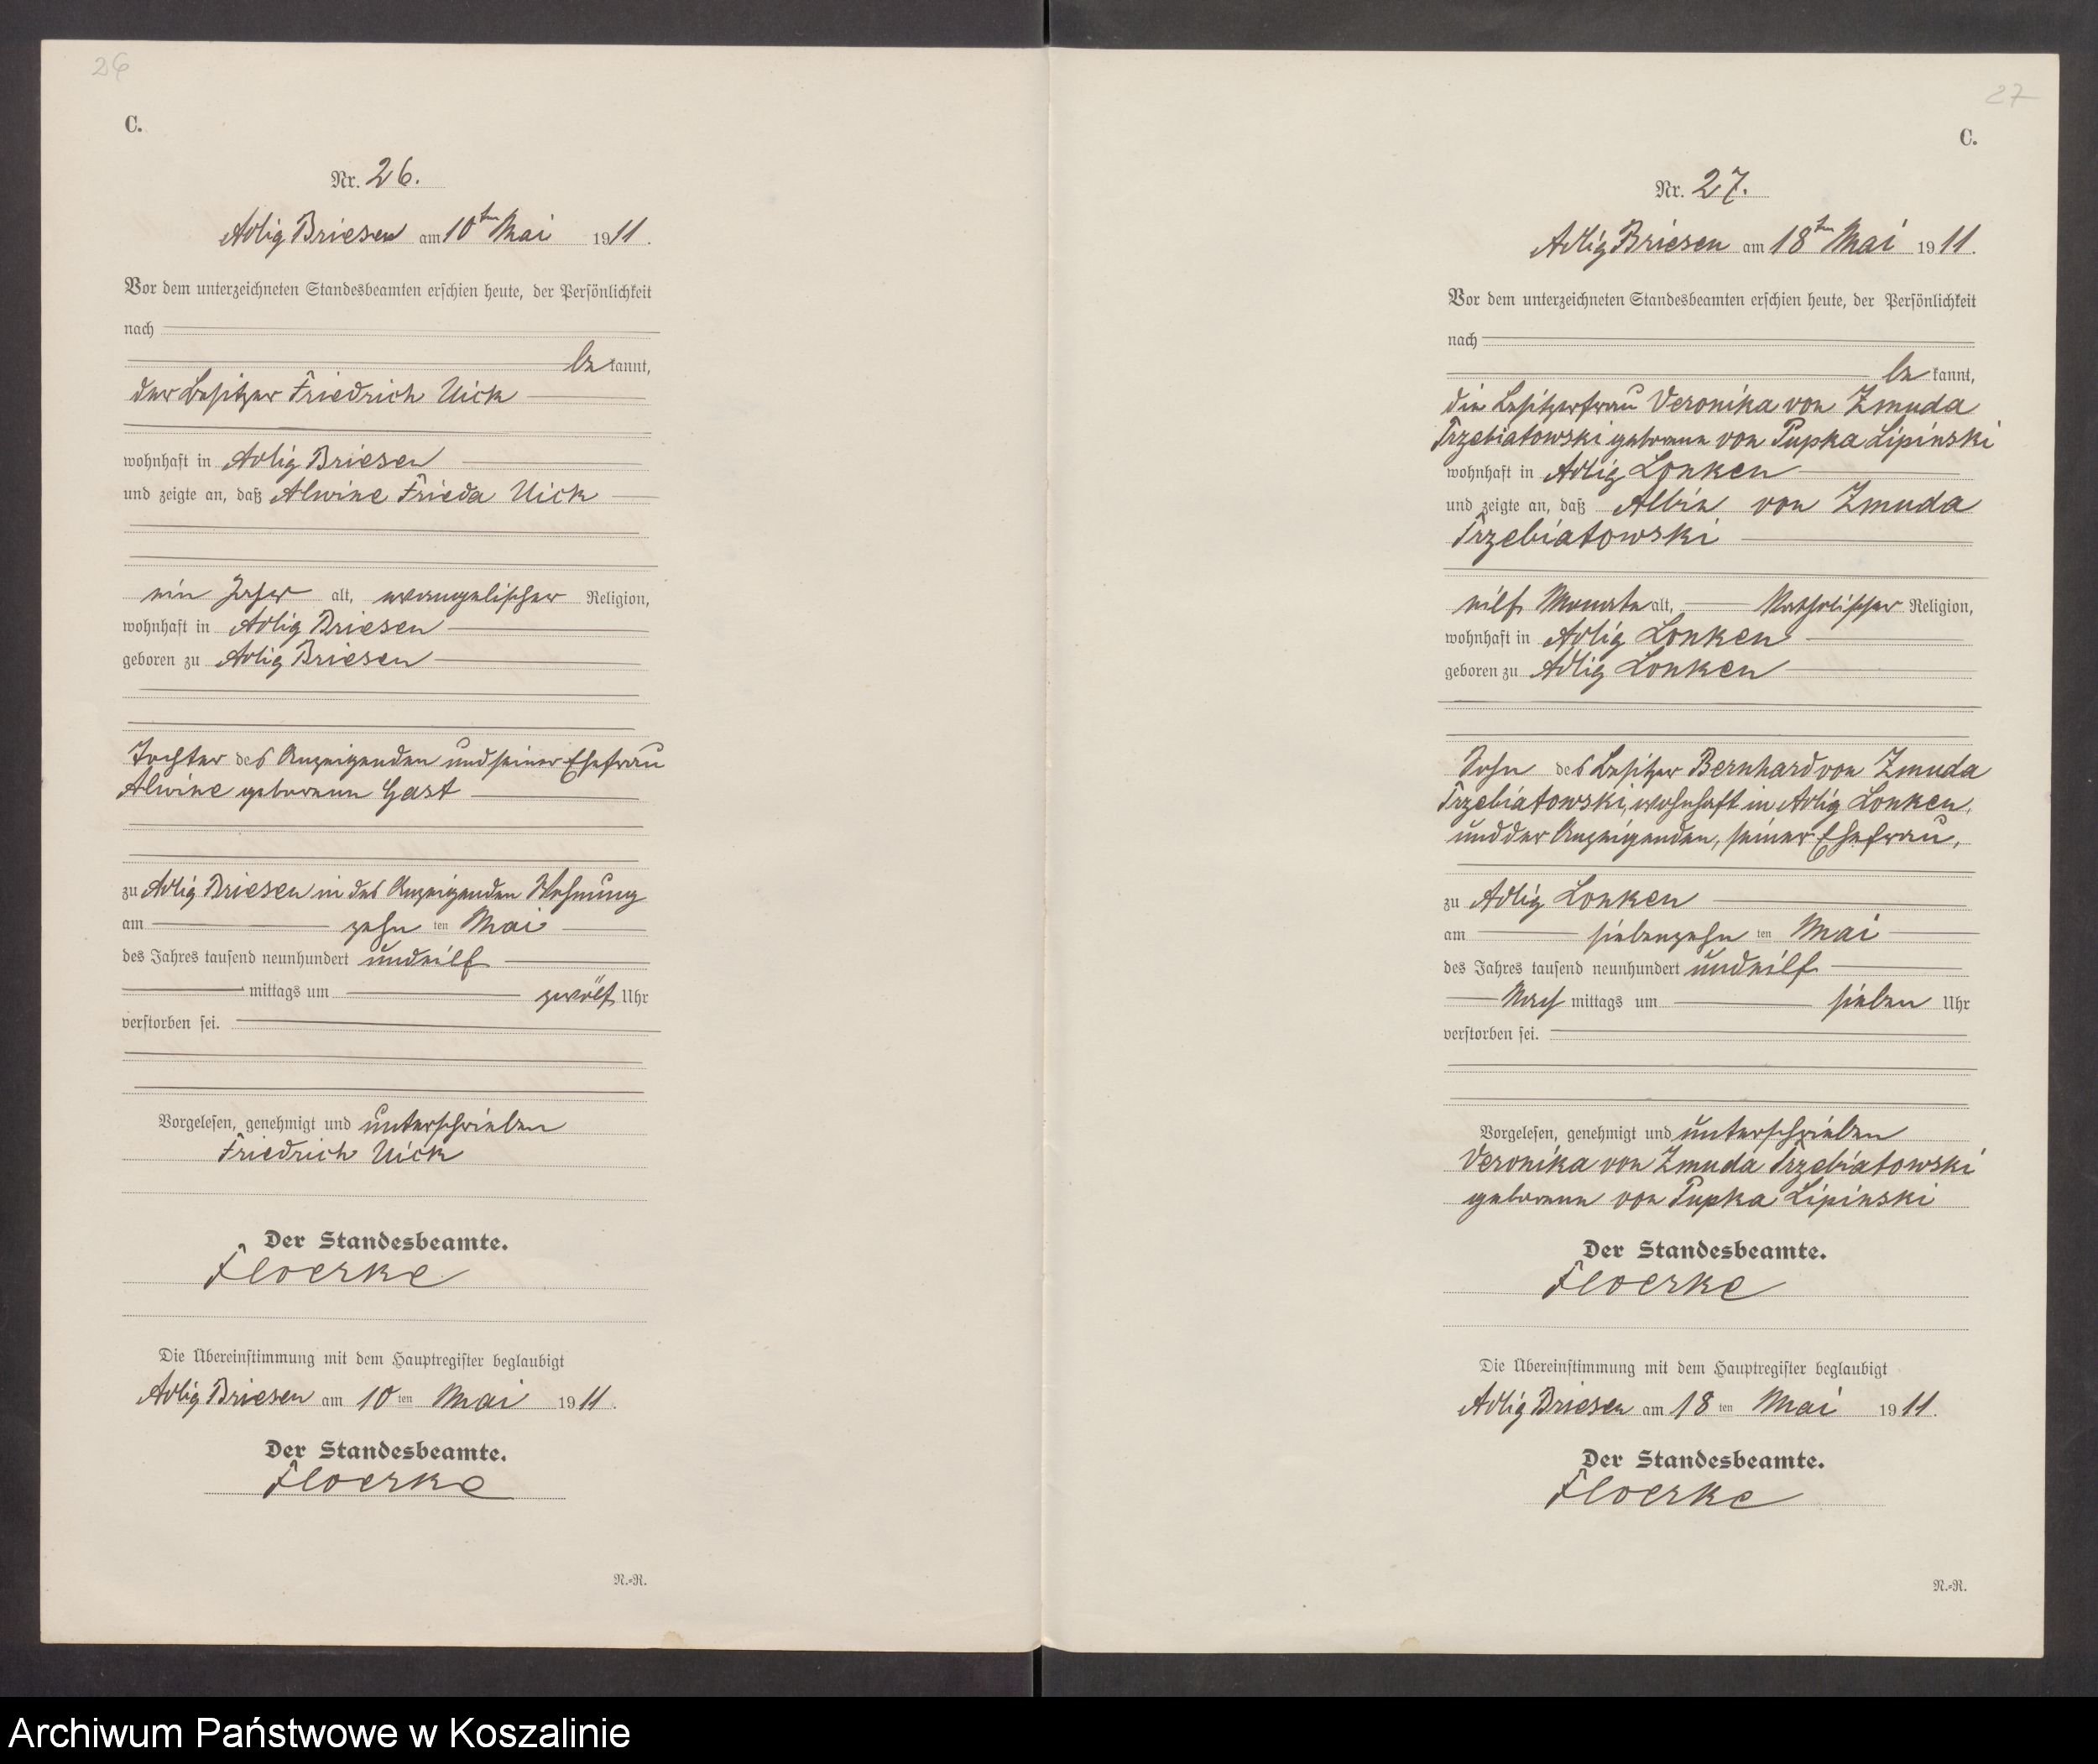 26
C.
Nr. 26.
Adlig Briesen am 10ten Mai 1911.
Vor dem unterzeichneten Standesbeamten erschien heute, der Persönlichkeit
nach
be kannt,
der Besitzer Friedrich Uick
wohnhaft in Adlig Briesen
und zeigte an, daß Alwine Frieda Uick
ein Jahr alt, evangelischer Religion,
wohnhaft in Adlig Briesen
geboren zu Adlig Briesen
Tochter des Anzeigenden und seiner Ehefrau
Alwine geborenen Gast
zu Adlig Briesen in des Anzeigenden Wohnung
am zehn ten Mai
des Jahres tausend neunhundert und eilf
mittags um zwölf Uhr
verstorben sei.
Vorgelesen, genehmigt und unterschrieben
Friedrich Uick
Der Standesbeamte.
Floerke
Die Übereinstimmung mit dem Hauptregister beglaubigt
Adlig Briesen am 10 ten Mai 1911.
Der Standesbeamte.
Floerke
N.=R.
27
C.
Nr. 27.
Adlig Briesen am 18ten Mai 1911.
Vor dem unterzeichneten Standesbeamten erschien heute, der Persönlichkeit
nach
be kannt,
die Besitzerfrau Veronika von Zmuda
Trzebiatowski geborene von Pupka Lipinski
wohnhaft in Adlig Lonken
und zeigte an, daß Albin von Zmuda
Trzebiatowski
eilf Monate alt, katholischer Religion,
wohnhaft in Adlig Lonken
geboren zu Adlig Lonken
Sohn des Besitzer Bernhard von Zmuda
Trzebiatowski, wohnhaft in Adlig Lonken,
und der Anzeigenden, seiner Ehefrau,
zu Adlig Lonken
am siebenzehn ten Mai
des Jahres tausend neunhundert und eilf
Nach mittags um sieben Uhr
verstorben sei.
Vorgelesen, genehmigt und unterschrieben
Veronika von Zmuda Trzebiatowski
geborene von Pupka Lipinski
Der Standesbeamte.
Floerke
Die Übereinstimmung mit dem Hauptregister beglaubigt
Adlig Briesen am 18 ten Mai 1911.
Der Standesbeamte.
Floerke
N.=R.
Archiwum Państwowe w Koszalinie